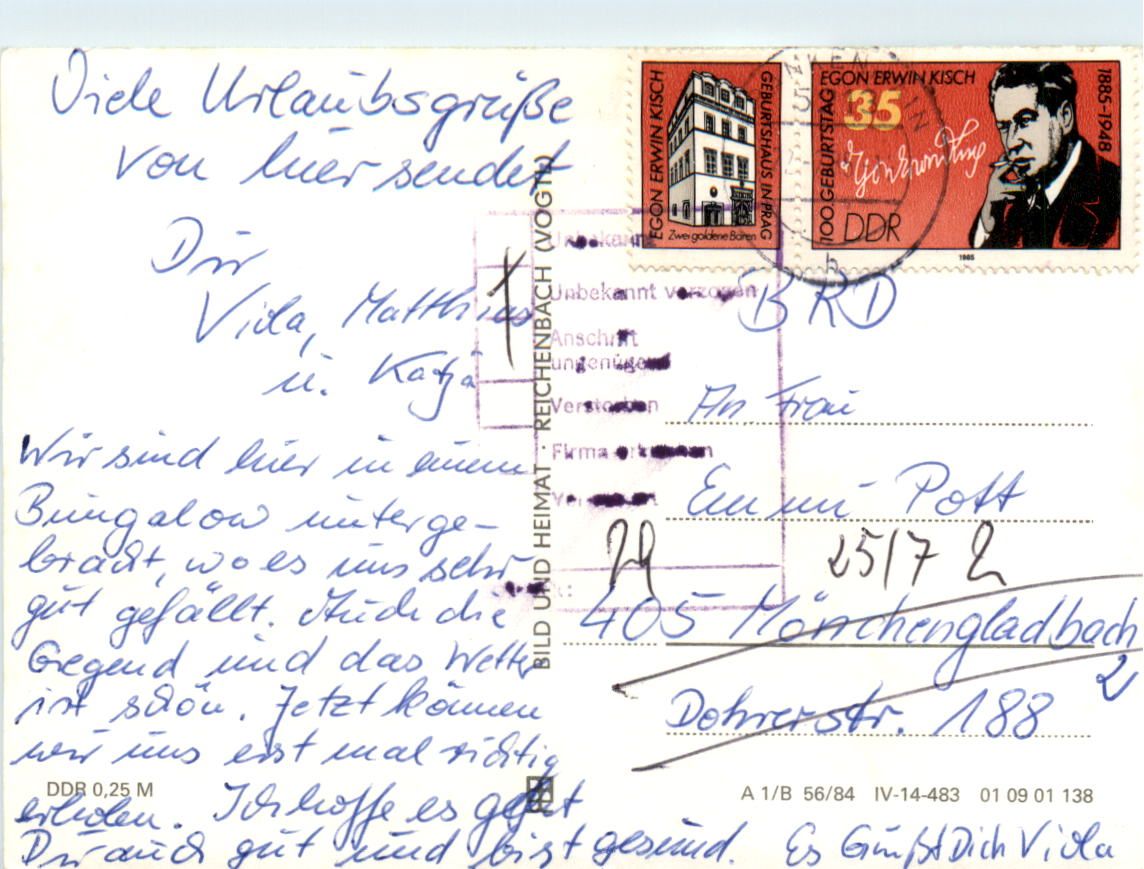 Viele Urlaubsgrüße
von hier sendet
Dir
Viola, Matthias
u. Katja
Wir sind hier in einem
Bungalow unterge-
bracht, wo es uns sehr
gut gefällt. Auch die
Gegend und das Wetter
ist schön. Jetzt können
wir uns erst mal richtig
erholen. Ich hoffe es geht
Dir auch gut und bist gesund. Es Grüßt Dich Viola
DDR 0,25 M
BILD UND HEIMAT · REICHENBACH (VOGTL
EGON ERWIN KISCH
GEBURTSHAUS IN PRAG
Zwei goldene Bären
EGON ERWIN KISCH
35
1885-1948
100. GEBURTSTAG
DDR
1985
Unbekannt
Unbekannt verzogen
Anschrift
ungenügend
Verstorben
Firma erloschen
BRD
An Frau
Emmi Pott
25/7
405 Mönchengladbach
2
Dohrerstr. 188
A 1/B 56/84 IV-14-483 01 09 01 138